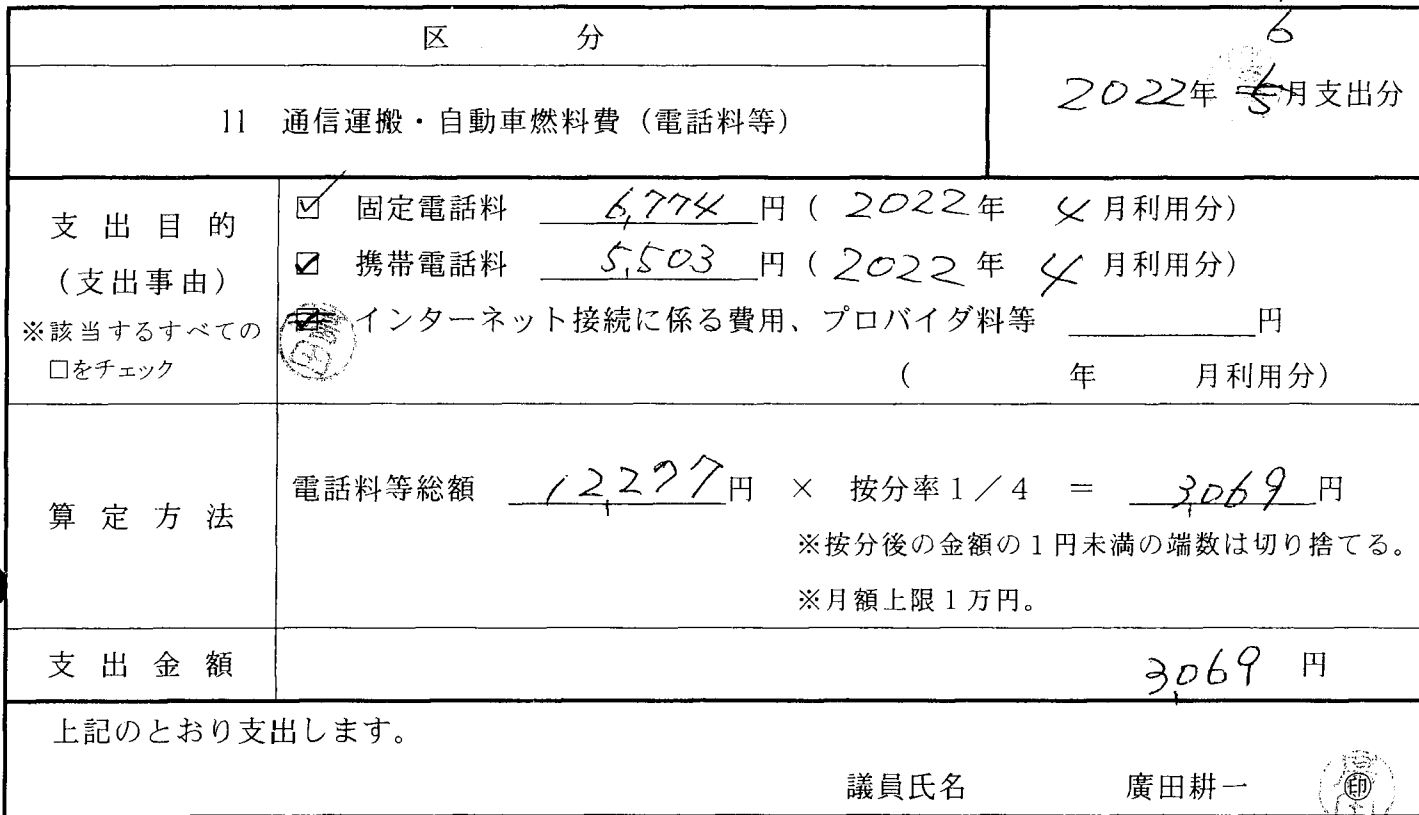 区 分
6
2022年 5月支出分
11 通信運搬・自動車燃料費（電話料等）
支出目的
（支出事由）
※該当するすべての
□をチェック
☑ 固定電話料 6,774円（2022年 4月利用分）
☑ 携帯電話料 5,503円（2022年 4月利用分）
☑ インターネット接続に係る費用、プロバイダ料等 円
（ 年 月利用分）
算定方法
電話料等総額 12,277円 × 按分率1／4 ＝ 3,069円
※按分後の金額の1円未満の端数は切り捨てる。
※月額上限1万円。
支出金額
3,069 円
上記のとおり支出します。
議員氏名 廣田耕一 ㊞